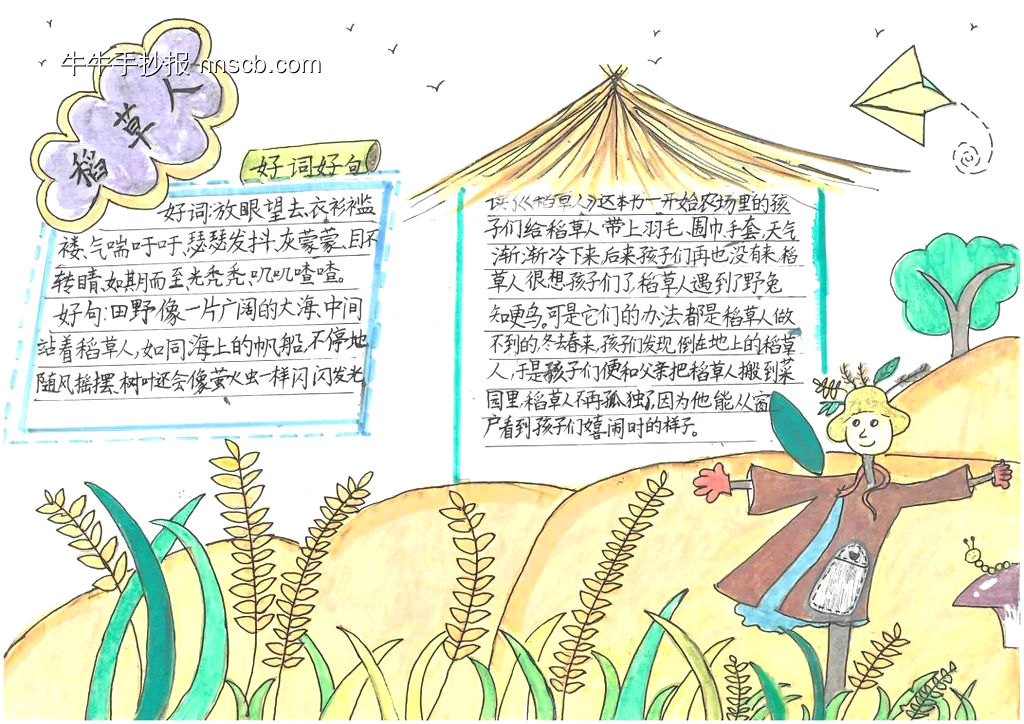 牛牛手抄报 nnscb.com
稻草人
好词好句
好词:放眼望去、衣衫褴
褛、气喘吁吁、瑟瑟发抖、灰蒙蒙、目不
转睛、如期而至、光秃秃、叽叽喳喳。
好句:田野像一片广阔的大海、中间
站着稻草人,如同海上的帆船,不停地
随风摇摆.树叶还会像萤火虫一样闪闪发光
读《稻草人》这本书一开始农场里的孩
子们给稻草人带上羽毛、围巾、手套,天气
渐渐冷下来,后来孩子们再也没有来,稻
草人很想孩子们了,稻草人遇到了野兔
知更鸟。可是它们的办法都是稻草人做
不到的,冬去春来,孩子们发现,倒在地上的稻草
人,于是孩子们便和父亲把稻草人搬到菜
园里,稻草人不再孤独了,因为他能从窗
户看到孩子们嬉闹时的样子。